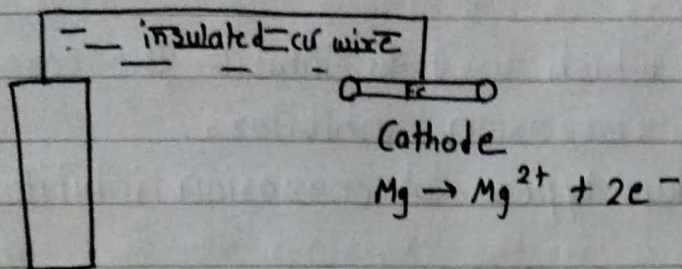 insulated cu wire
Fe
Cathode
Mg → Mg²⁺ + 2e⁻